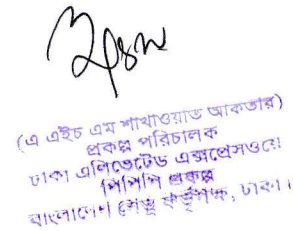 (এ এইচ এম শাখাওয়াত আকতার)
প্রকল্প পরিচালক
ঢাকা এলিভেটেড এক্সপ্রেসওয়ে
পিপিপি প্রকল্প
বাংলাদেশ সেতু কর্তৃপক্ষ, ঢাকা।